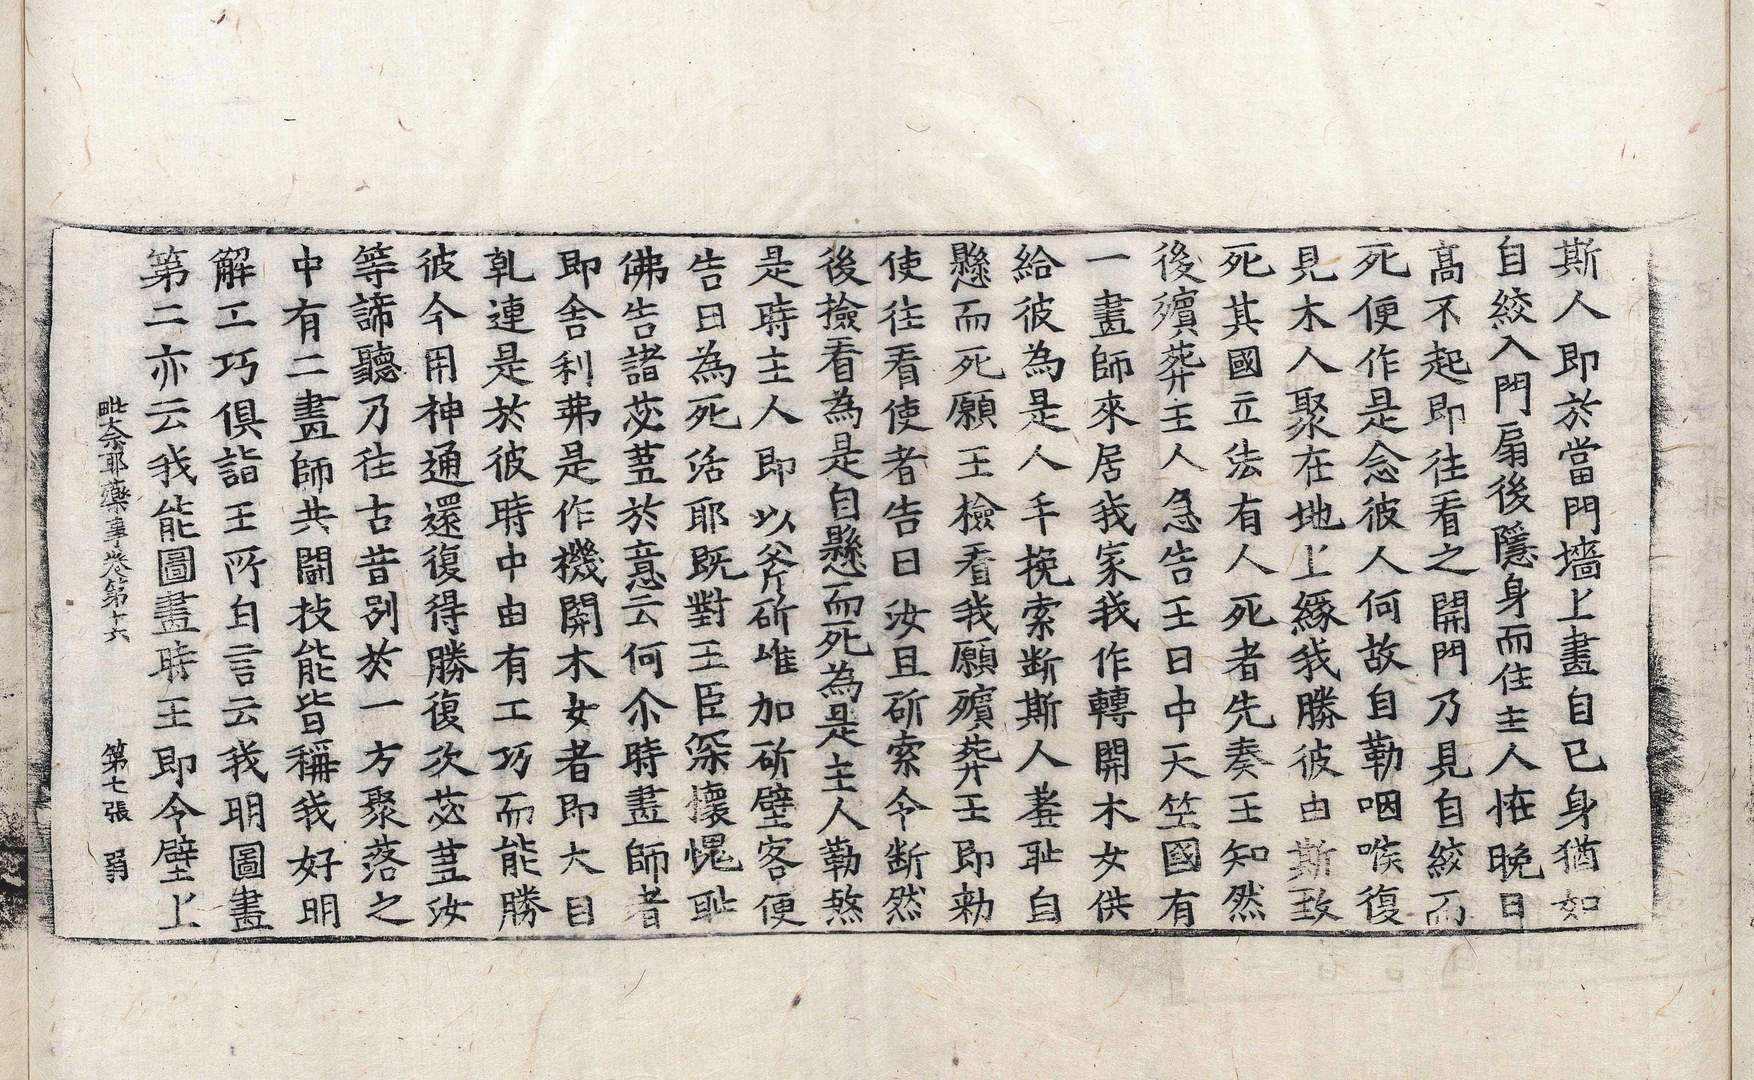 斯人即於當門墻上畫自已身猶如
自絞入門扇後隱身而住主人恠晚日
髙不起即往看之開門乃見自絞而
死便作是念彼人何故自勒咽喉復
見木人聚在地上緣我勝彼由斯致
死其國立法有人死者先奏王知然
後殯葬主人急告王曰中天竺國有
一畫師來居我家我作轉關木女供
給彼為是人手挽索断斯人羞耻自
懸而死願王檢看我願殯葬王即勑
使往看使者告曰汝且斫索令断然
後撿看為是自懸而死為是主人勒煞
是時主人即以斧斤斫唯加斫壁客便
告曰為死活耶既對王臣深懷愧耻
佛告諸苾蒭於意云何尒時畫師者
即舍利弗是作機關木女者即大目
乹連是於彼時中由有工巧而能勝
彼今用神通還復得勝復次苾蒭汝
等諦聽乃往古昔别於一方聚落之
中有二畫師共闘技能皆稱我好明
解工巧俱詣王所白言云我明圖畫
第二亦云我能圖畫時王即令壁上
毗奈耶藥事卷第十六 第七張